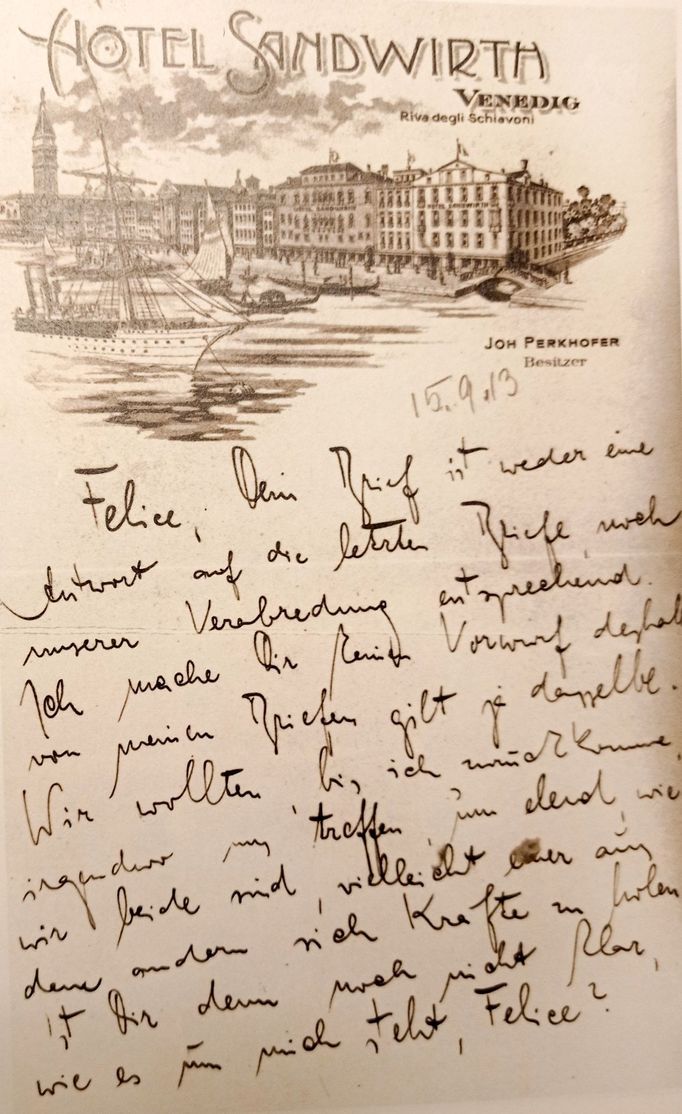 HOTEL SANDWIRTH
VENEDIG
Riva degli Schiavoni
HOTEL SANDWIRTH
JOH PERKHOFER
Besitzer
15.9.13
Felice, Dein Brief ist weder eine
Antwort auf die letzten Briefe, noch
unserer Verabredung entsprechend.
Ich mache Dir keinen Vorwurf deshalb
von meinen Briefen gilt ja dasselbe.
Wir wollten, bis ich zurückkomme,
irgendwo uns treffen, um elend, wie
wir beide sind, vielleicht einer aus
dem andern sich Kräfte zu holen
ist Dir denn noch nicht klar,
wie es um mich steht, Felice?